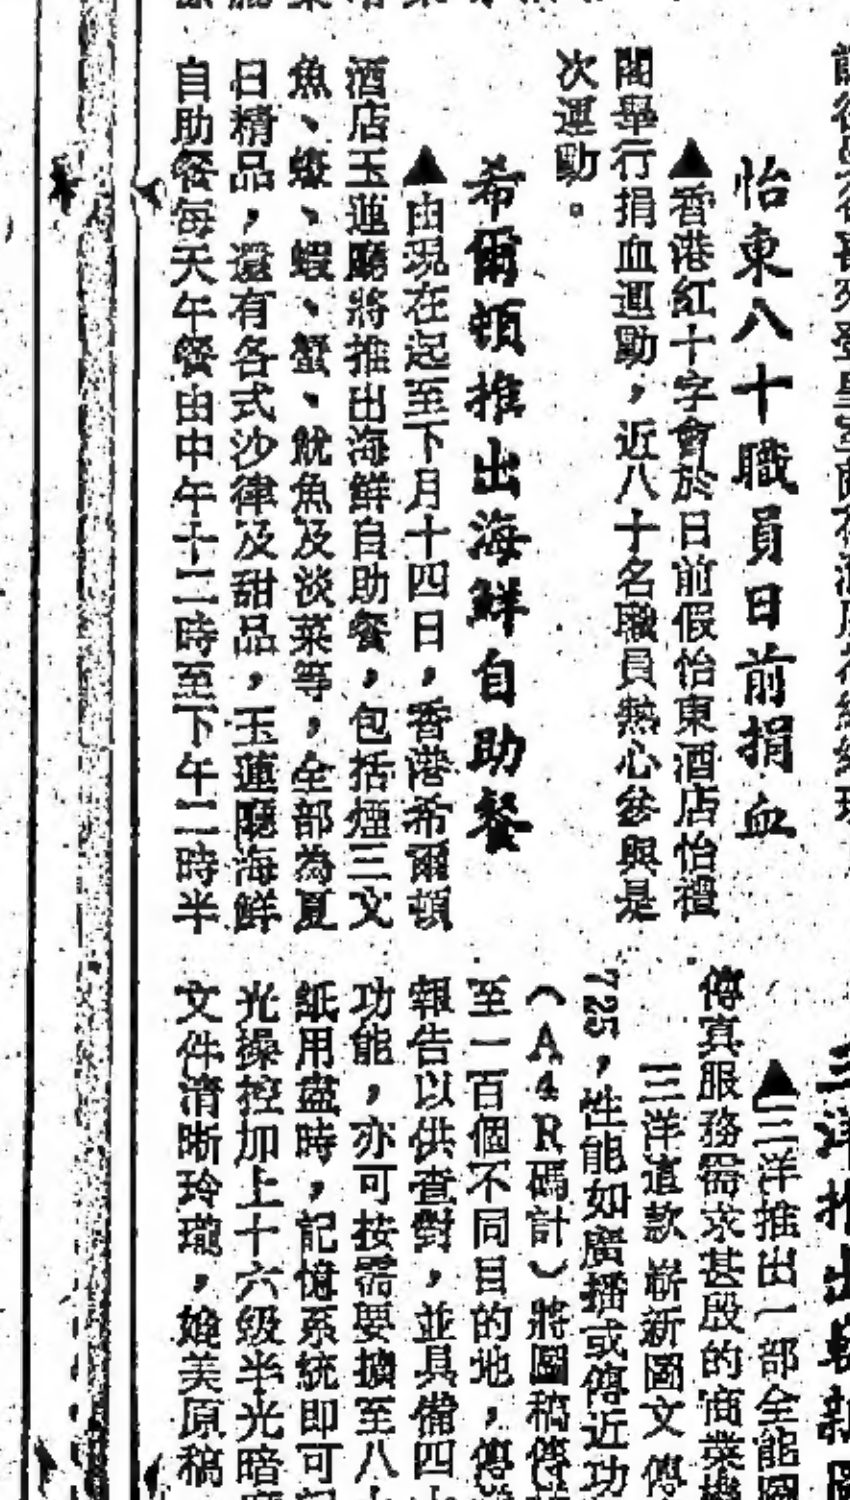 怡東八十職員日前捐血
▲香港紅十字會於日前假怡東酒店怡禮
閣舉行捐血運動，近八十名職員熱心參與是
次運動。
希爾頓推出海鮮自助餐
▲由現在起至下月十四日，香港希爾頓
酒店玉蓮廳將推出海鮮自助餐，包括煙三文
魚、蠔、蝦、蟹、魷魚及淡菜等，全部為夏
日精品，還有各式沙律及甜品，玉蓮廳海鮮
自助餐每天午餐由中午十二時至下午二時半
三洋推出嶄新圖
▲三洋推出一部全能圖
傳真服務需求甚殷的商業機
三洋這款嶄新圖文傳
725，性能如廣播或傳近功
（A4R碼計）將圖稿傳
至一百個不同目的地，傳
報告以供查對，並具備四
功能，亦可按需要擴至八
紙用盡時，記憶系統即可
光操控加上十六級半光暗
文件清晰玲瓏，媲美原稿